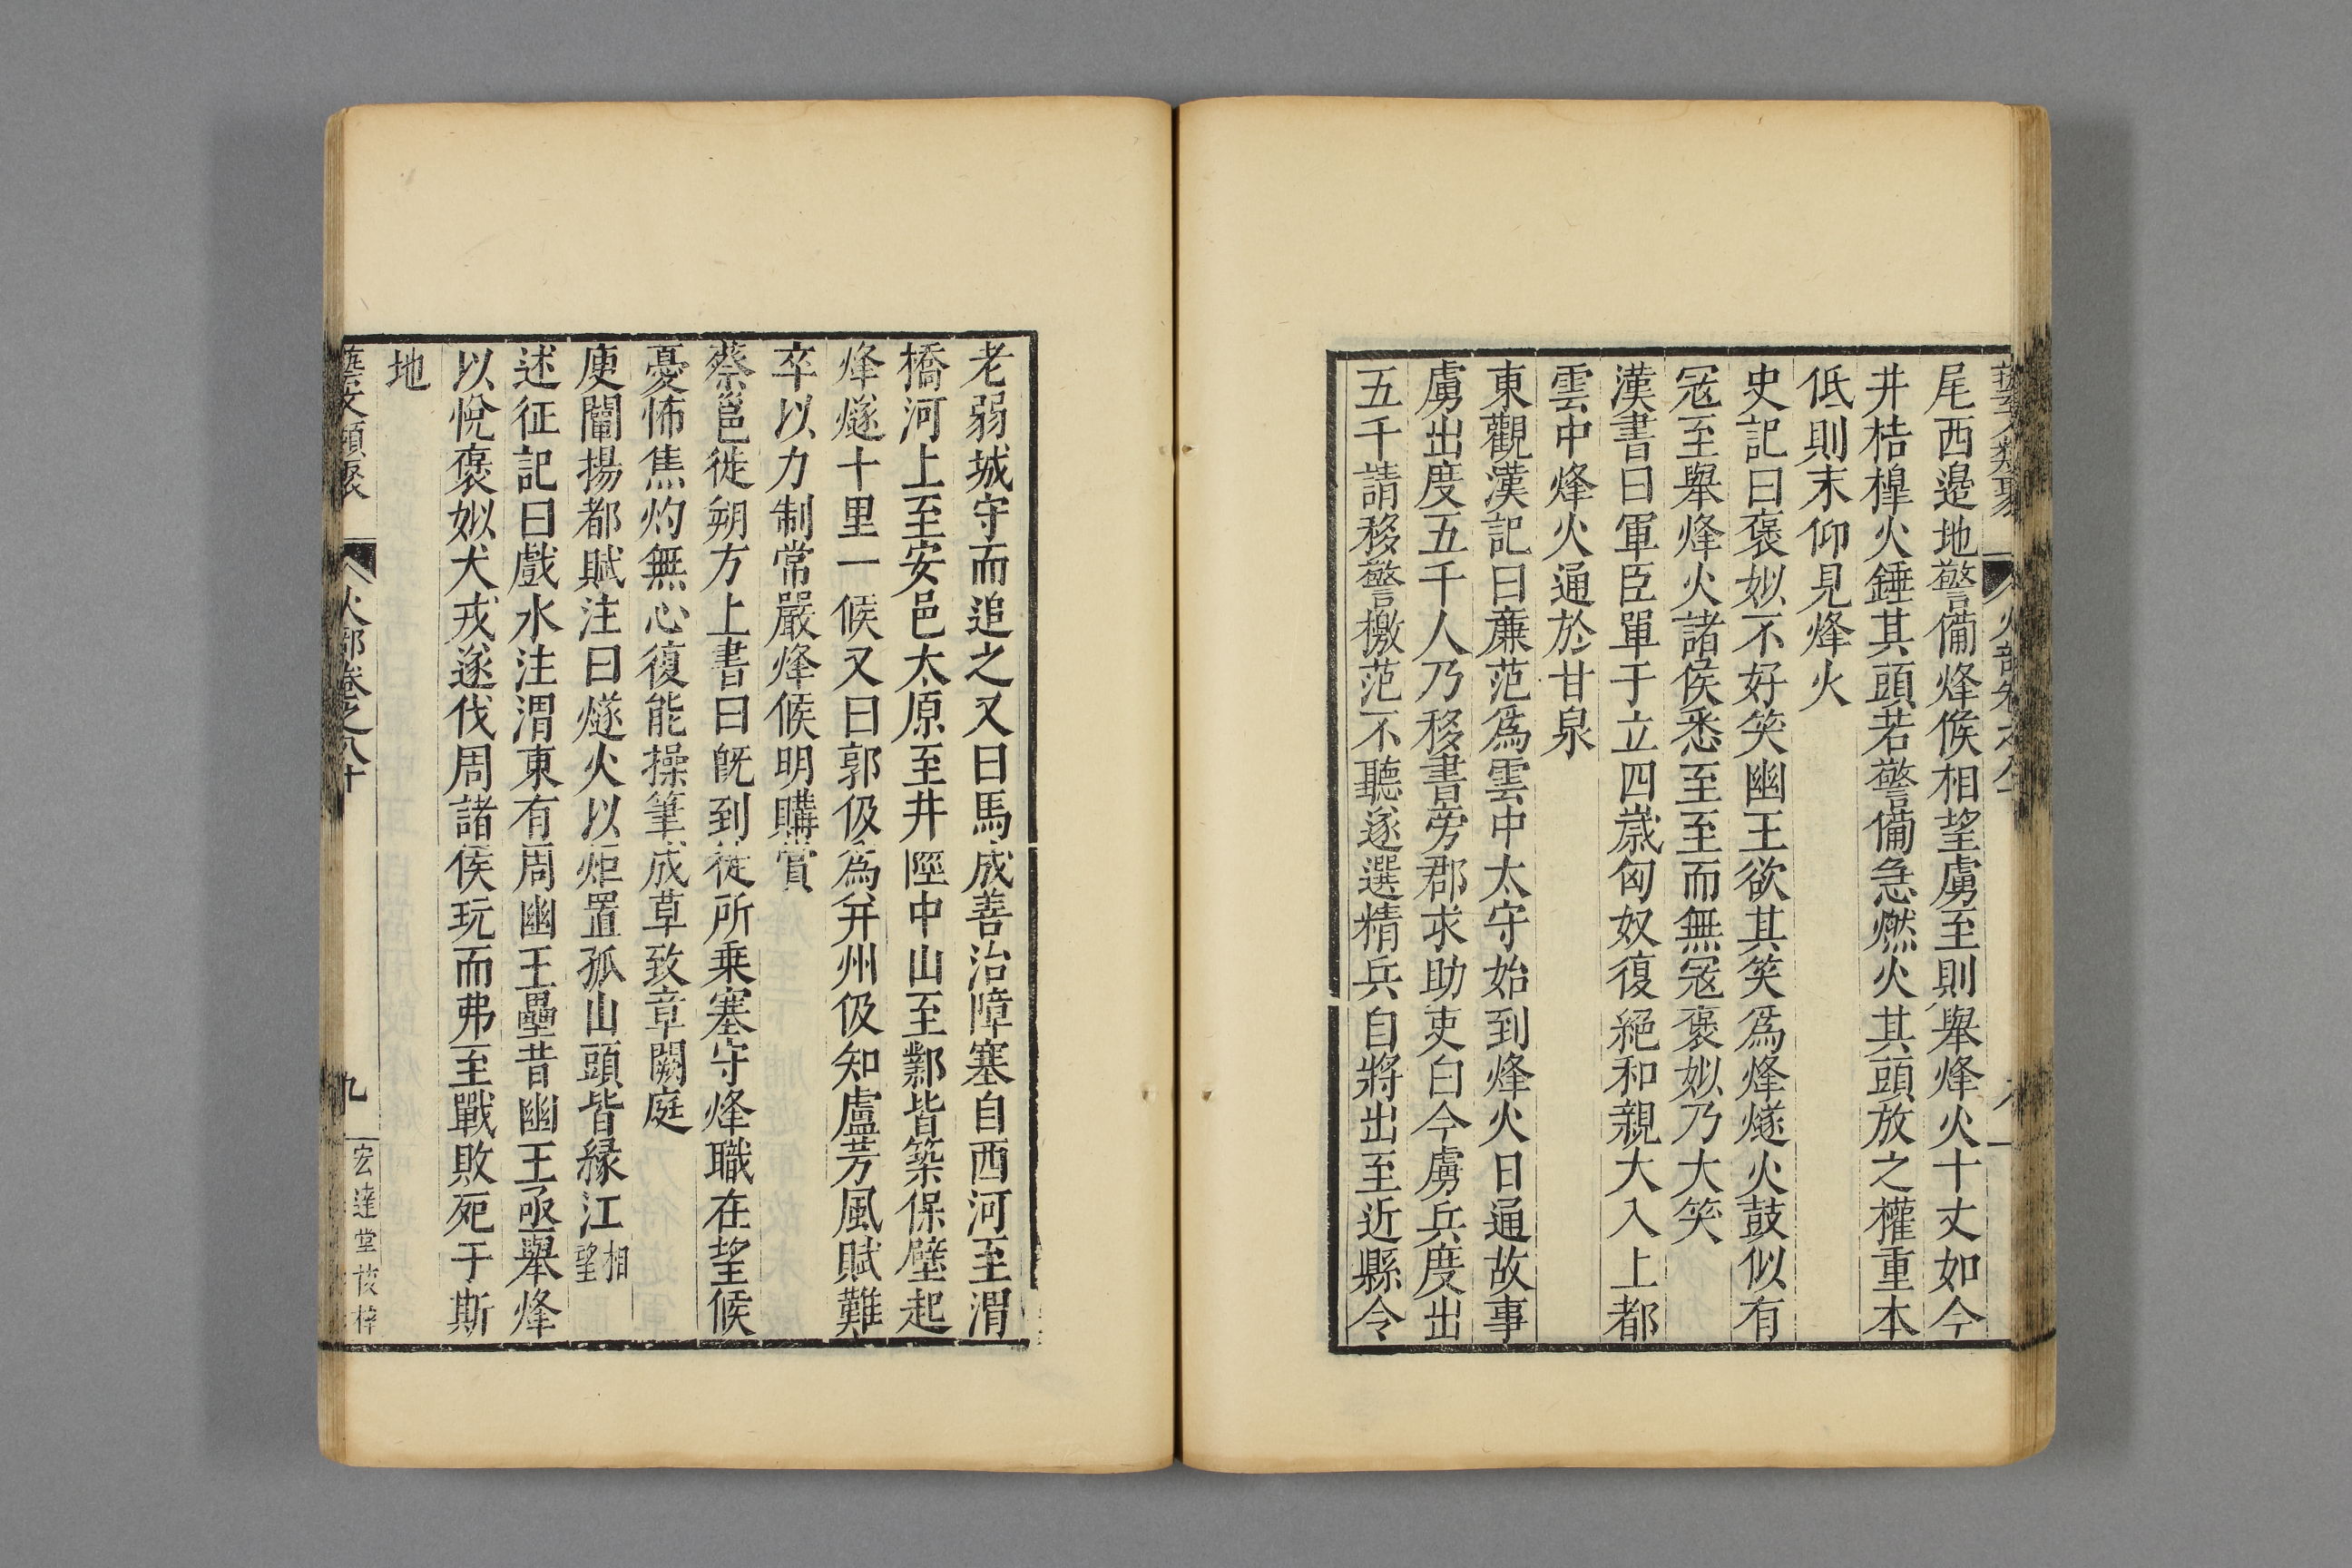 尾西邉地警備烽候相望虜至則舉烽火十丈如今
井桔橰火錘其頭若警備急燃火其頭放之權重本
低則末仰見烽火
史記曰褒姒不好笑幽王欲其笑爲烽燧火鼓似有
冦至舉烽火諸侯悉至至而無冦褒姒乃大笑
漢書曰軍臣單于立四歲匈奴復絕和親大入上都
雲中烽火通於甘泉
東觀漢記曰亷范爲雲中太守始到烽火日通故事
虜出度五千人乃移書旁郡求助吏白今虜兵度出
五千請移警檄范不聽遂選精兵自將出至近縣令
老弱城守而追之又曰馬成善治障塞自西河至渭
橋河上至安邑太原至井陘中山至鄴皆築保壁起
烽燧十里一候又曰郭伋爲幷州伋知盧芳風賦難
卒以力制常嚴烽候明購賞
蔡邕徙朔方上書曰旣到徙所乗塞守烽職在望候
憂怖焦灼無心復能操筆成草致章闕庭
庾闡揚都賦注曰燧火以炬置孤山頭皆緣江相望
述征記曰戲水注渭東有周幽王壘昔幽王亟舉烽
以悅褒姒犬戎遂伐周諸侯玩而弗至戰敗死于斯
地
藝文類聚 火部卷之八十 九 宏達堂校梓